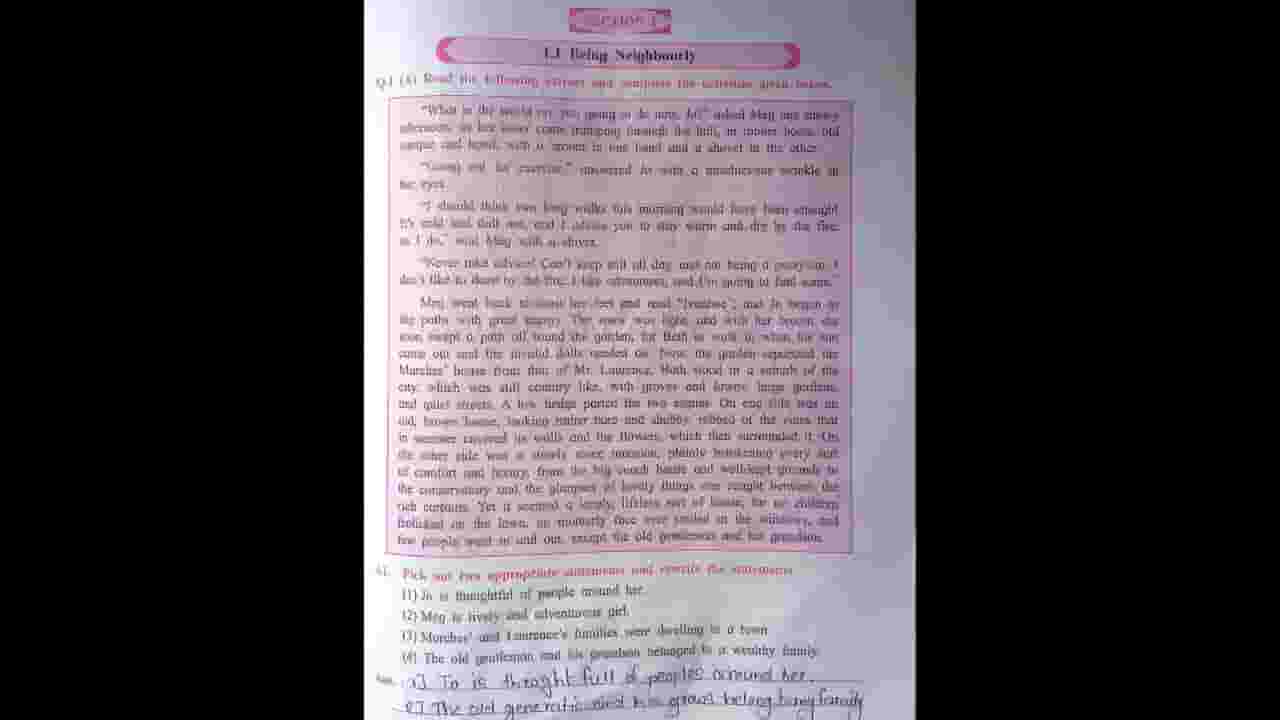 SECTION I
1.1 Being Neighbourly
Q.1 (A) Read the following extract and complete the activities given below.
"What in the world are you going to do now, Jo?" asked Meg one snowy
afternoon, as her sister came tramping through the hall, in rubber boots, old
sacque and hood, with a broom in one hand and a shovel in the other.
"Going out for exercise," answered Jo with a mischievous twinkle in
her eyes.
"I should think two long walks this morning would have been enough!
It's cold and dull out, and I advise you to stay warm and dry by the fire,
as I do," said Meg with a shiver.
"Never take advice! Can't keep still all day, and not being a pussycat, I
don't like to doze by the fire. I like adventures, and I'm going to find some."
Meg went back to toast her feet and read "Ivanhoe", and Jo began to
dig paths with great energy. The snow was light, and with her broom she
soon swept a path all round the garden, for Beth to walk in when the sun
came out and the invalid dolls needed air. Now, the garden separated the
Marches' house from that of Mr. Laurence. Both stood in a suburb of the
city, which was still country like, with groves and lawns, large gardens,
and quiet streets. A low hedge parted the two estates. On one side was an
old, brown house, looking rather bare and shabby, robbed of the vines that
in summer covered its walls and the flowers, which then surrounded it. On
the other side was a stately stone mansion, plainly betokening every sort
of comfort and luxury, from the big coach house and well-kept grounds to
the conservatory and the glimpses of lovely things one caught between the
rich curtains. Yet it seemed a lonely, lifeless sort of house, for no children
frolicked on the lawn, no motherly face ever smiled at the windows, and
few people went in and out, except the old gentleman and his grandson.
A1. Pick out two appropriate statements and rewrite the statements.
(1) Jo is thoughtful of people around her.
(2) Meg is lively and adventurous girl.
(3) Marches' and Laurence's families were dwelling in a town
(4) The old gentleman and his grandson belonged to a wealthy family.
Ans. 1] Jo is thoughtfull of peoples around her.
2] The old and his belong family